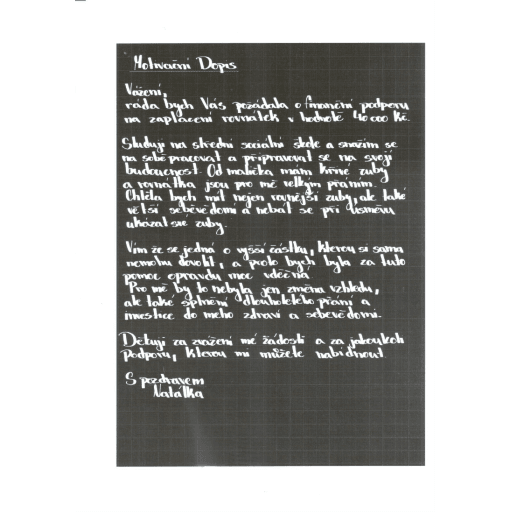 Motivační Dopis
Vážení,
ráda bych Vás požádala o finanční podporu
na zaplacení rovnátek v hodnotě 40 000 Kč.
Studuji na střední sociální škole a snažím se
na sobě pracovat a připravovat se na svoji
budoucnost. Od malička mám křivé zuby
a rovnátka jsou pro mě velkým přáním.
Chtěla bych mít nejen rovnější zuby, ale také
větší sebevědomí a nebát se při úsměvu
ukázat své zuby.
Vím že se jedná o vyšší částku, kterou si sama
nemohu dovolit, a proto bych byla za tuto
pomoc opravdu moc vděčná
Pro mě by to nebyla jen změna vzhledu,
ale také splnění dlouholetého přání a
investice do mého zdraví a sebevědomí.
Děkuji za zvážení mé žádosti a za jakoukoli
Podporu, kterou mi můžete nabídnout
S pozdravem
Natálka